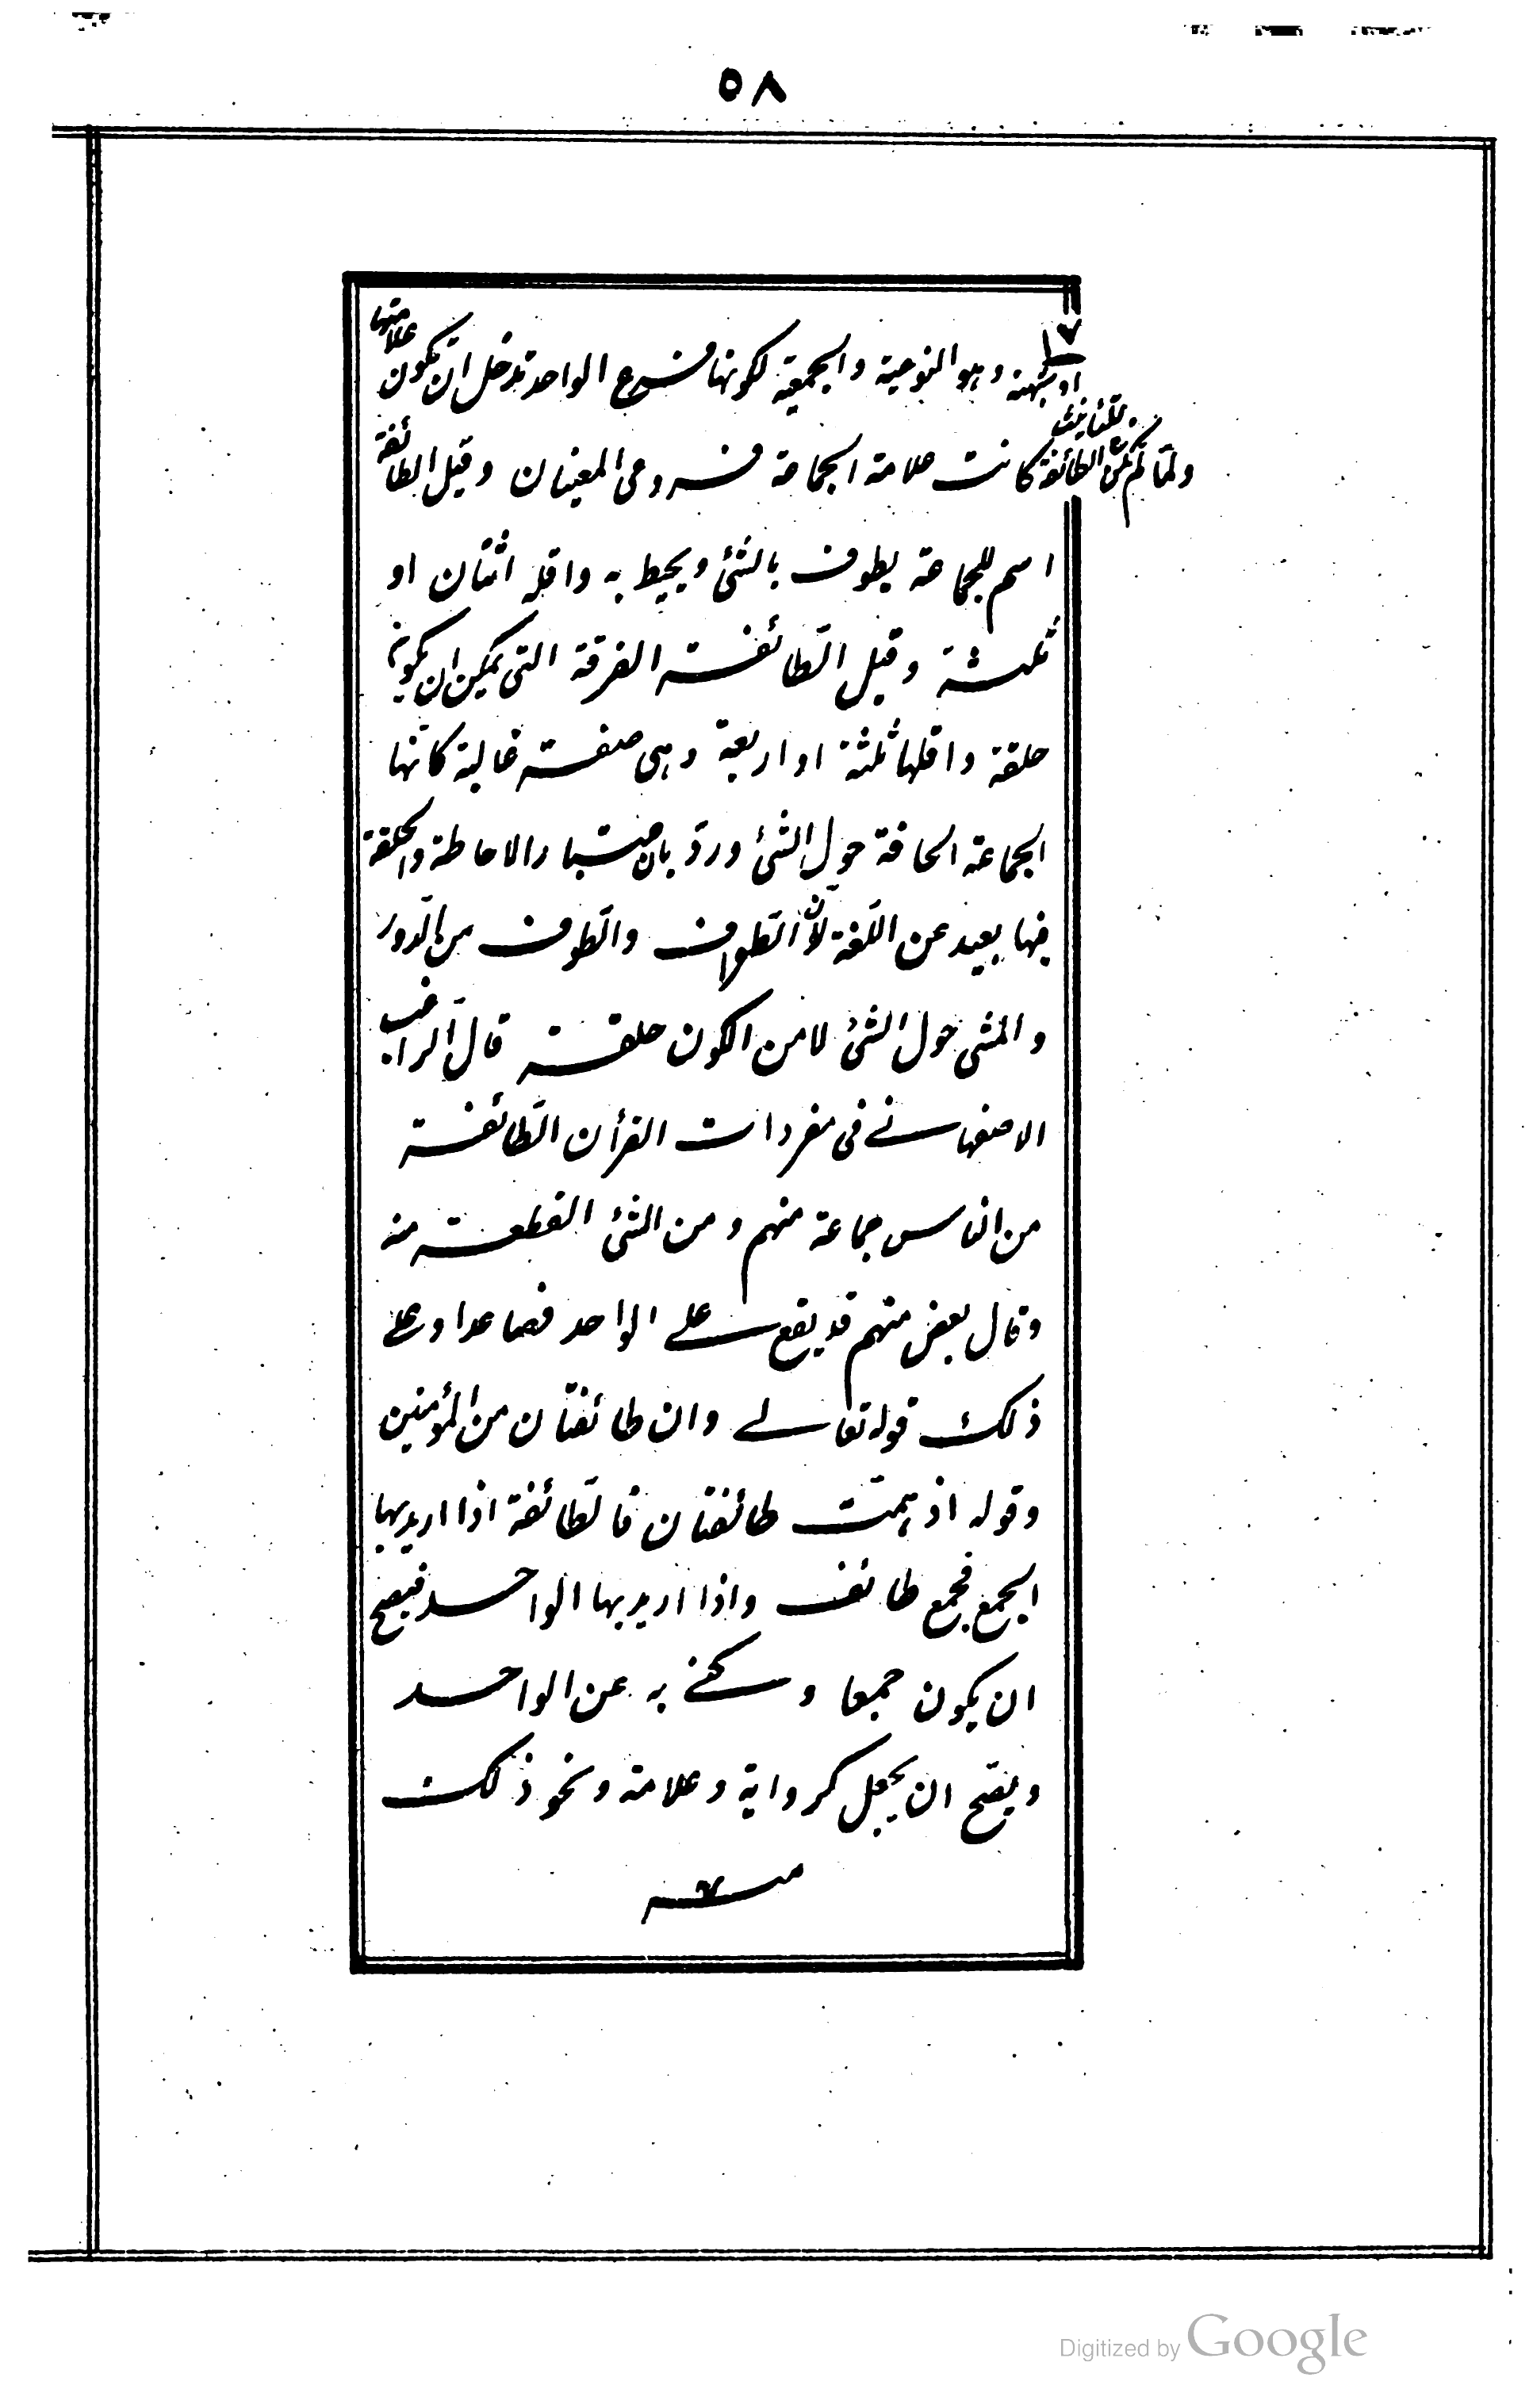 ٥٨
١٧
او شبهته وهو النوعية والجمعية لكونها فرع الواحد تدخل ان تكون علامتها
للتانيث
ولما لم تكن الطائفة كانت علامة الجماعة فروعى المعنيان وقيل الطائفة
اسم للجماعة يطوف بالشئ ويحيط به واقله اثنان او
ثلثة وقيل الطّائفة الفرقة التى يمكن ان يكون
حلقة واقلها ثلثة او اربعة وهى صفة غالبة كانّها
الجماعة الحافة حول الشئ وردّ بان اعتبار الاحاطة والحلقة
فيها بعيد عن اللّغة لانّ الطّواف والطّوف من الدّور
والمشى حول الشئ لا من الكون حلقة قال الرّاغب
الاصفهانے فى مفردات القرأن الطّائفة
من الناس جماعة منهم ومن الشئ القطعة منه
وقال بعض منهم قد يقع علے الواحد فصاعدا وعلے
ذلك قوله تعالے وان طائفتان من المؤمنين
وقوله اذ همّت طائفتان فالطّائفة اذا اريد بها
الجمع فجمع طائف واذا اريد بها الواحد فيصح
ان يكون جمعا وكنے به عن الواحد
ويصح ان يجعل كرواية وعلامة ونحو ذلك
Digitized by Google